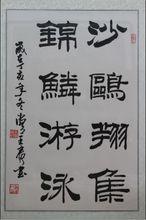 沙鷗翔集
錦鱗游泳
歲在丁亥年冬